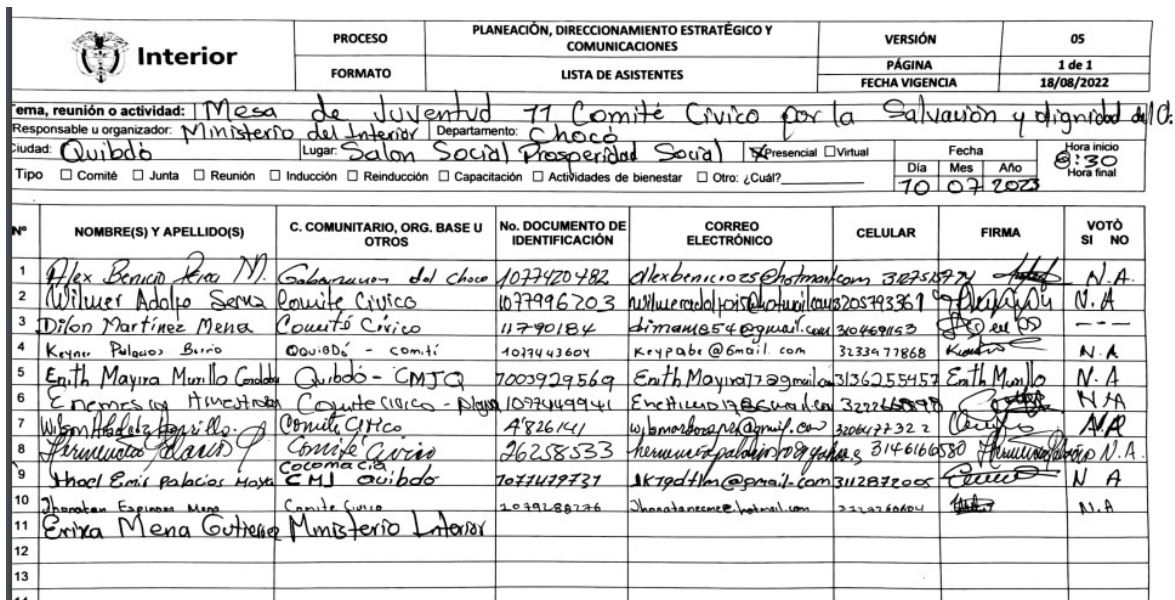 Interior
PROCESO PLANEACIÓN, DIRECCIONAMIENTO ESTRATÉGICO Y COMUNICACIONES VERSIÓN 05
FORMATO LISTA DE ASISTENTES PÁGINA 1 de 1
FECHA VIGENCIA 18/08/2022
ema, reunión o actividad: Mesa de Juventud 11 Comité Civico por la Salvación y dignidad del
Responsable u organizador: Ministerio del Interior Departamento: Chocó
iudad: Quibdó Lugar: Salon Social Prosperidad Social Presencial Virtual Fecha Hora inicio
8:30
Tipo Comité Junta Reunión Inducción Reinducción Capacitación Actividades de bienestar Otro: ¿Cuál? Día Mes Año Hora final
10 07 2023
Nº NOMBRE(S) Y APELLIDO(S) C. COMUNITARIO, ORG. BASE U OTROS No. DOCUMENTO DE IDENTIFICACIÓN CORREO ELECTRÓNICO CELULAR FIRMA VOTÒ SI NO
1 Alex Benicio M. del Choco 1077420482 N.A.
2 Wilmer Adolfo Serna Comite Civico 1077996203 3205793361 N.A
3 Dilon Martínez Mena Comité Cívico 11790184 dimame54@gmail.com ---
4 Keyner Palacios Berrio QuiBDó - comití 1077443604 keypabe@Gmail.com 3233977868 N.A
5 Enith Mayira Murillo Quibdó - CMJQ 1003929569 EnithMayira17@gmail.com 3136255457 Enith Murillo N.A
6 Comite civico 1077449941 N A
7 Wilson Comite Civico 4'826141
8 Hermencia Palacios Comité Civico 26258533 3146166580 N.A.
9 Jhoel Emir Palacios Moya Cocomacia CMJ Quibdo 1077479737 3112872005 N A
10 Jhonatan Espinosa Mena Comite Civico N.A
11 Erika Mena Gutierrez Ministerio Interior
12
13